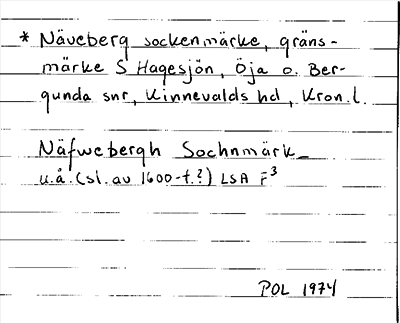 * Näveberg sockenmärke, gräns-
märke S Hagesjön, Öja o. Ber-
gunda snr, Kinnevalds hd, Kron. l.
Näfwebergh Sochnmärk
u.å. (sl. av 1600-t.?) LSA F3
POL 1974